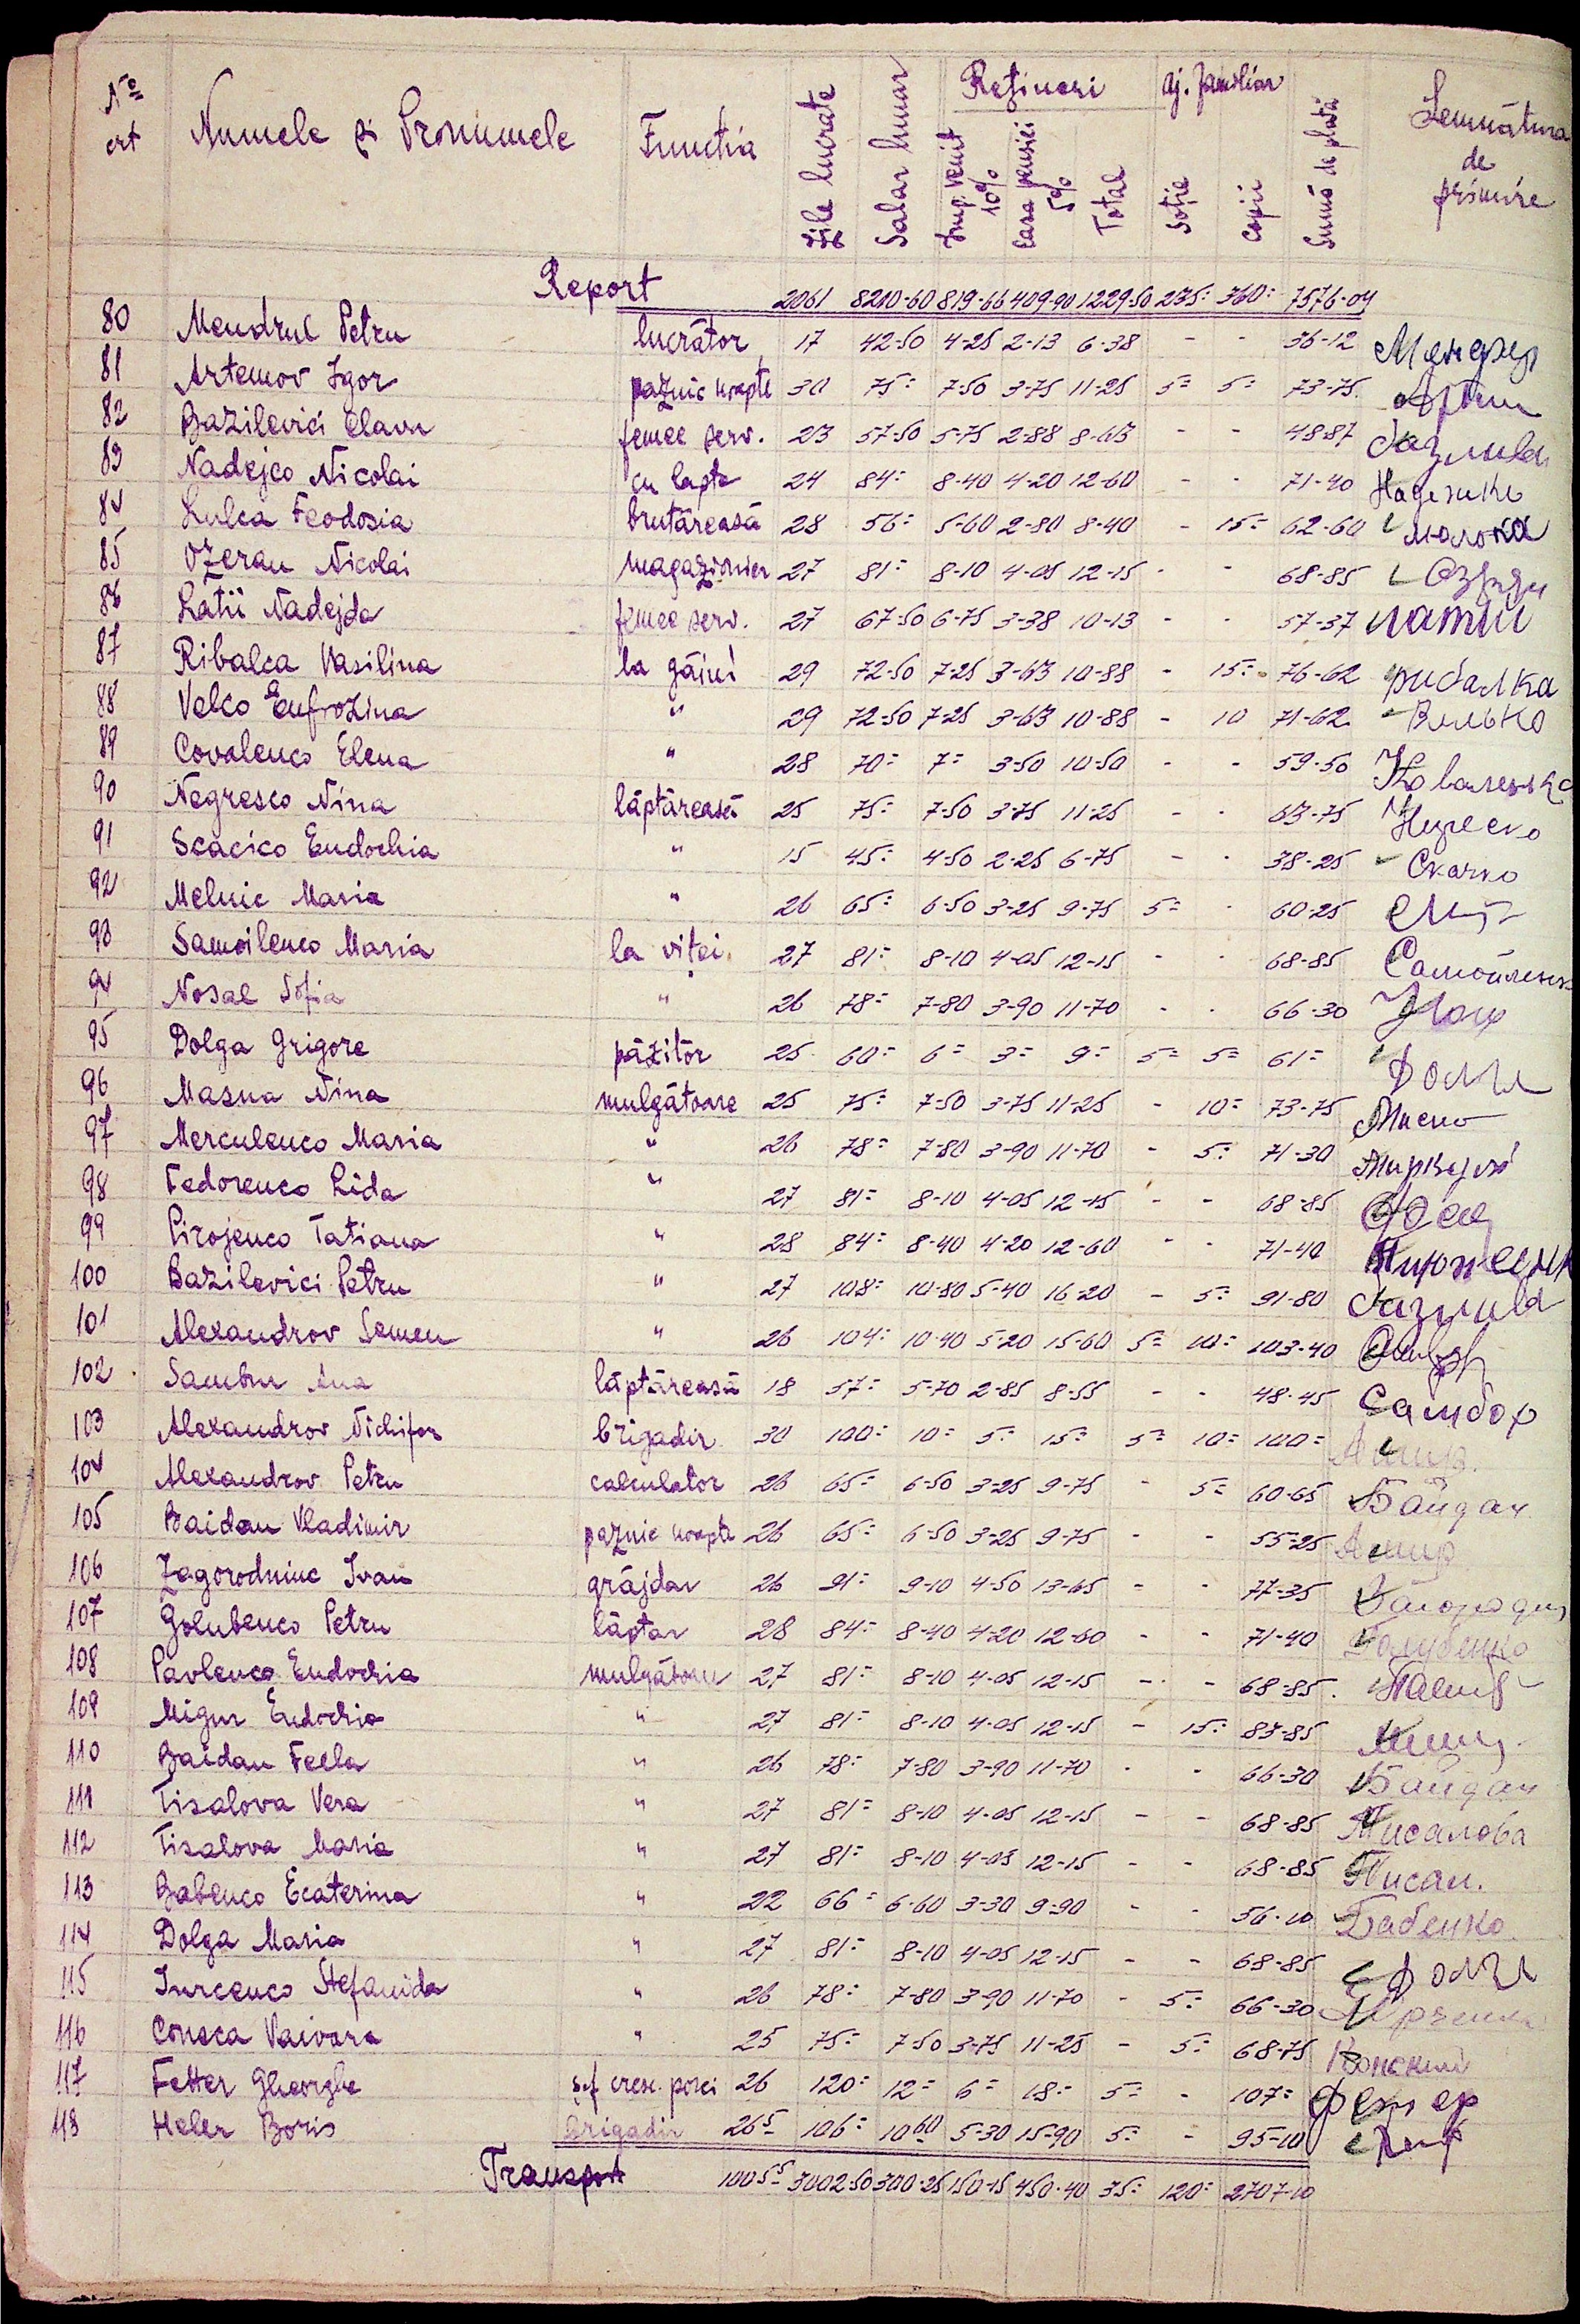 No ort Numele și Pronumele Functia zile lucrate Salar lunar Rețineri Imp. venit 10% Casa pensiei 5% Total Aj. familiar Soție Copii Sumă de plată Semnătura de primire
Report 2061 8210-60 819-66 409-90 1229-50 235= 360= 7576-04
80 Mendrul Petru lucrător 17 42-50 4-25 2-13 6-38 - - 36-12
81 Artemov Igor paznic noapte 30 75= 7-50 3-75 11-25 5= 5= 73-75
82 Bazilevici Elava femee serv. 23 57-50 5-75 2-88 8-63 - - 48-87
83 Nadejco Nicolai cu lapte 24 84= 8-40 4-20 12-60 - - 71-40
84 Lulca Feodosia brutăreasă 28 56= 5-60 2-80 8-40 - 15= 62-60
85 Ozeran Nicolai magazionier 27 81= 8-10 4-05 12-15 - - 68-85
86 Latii Nadejda femee serv. 27 67-50 6-75 3-38 10-13 - - 57-37 латии
87 Ribalca Vasilina la găini 29 72-50 7-25 3-63 10-88 - 15= 76-62 рибалка
88 Velco Eufrozina " 29 72-50 7-25 3-63 10-88 - 10 71-62 Велько
89 Covalenco Elena " 28 70= 7= 3-50 10-50 - - 59-50 Коваленко
90 Negresco Nina lăptăreasă 25 75= 7-50 3-75 11-25 - - 63-75
91 Scacico Eudochia " 15 45= 4-50 2-25 6-75 - - 38-25
92 Melnic Maria " 26 65= 6-50 3-25 9-75 5= - 60-25
93 Samoilenco Maria la viței 27 81= 8-10 4-05 12-15 - - 68-85 Самойленко
94 Nosal Sofia " 26 78= 7-80 3-90 11-70 - - 66-30
95 Dolga Grigore păzitor 25 60= 6= 3= 9= 5= 5= 61=
96 Masna Nina mulgătoare 25 75= 7-50 3-75 11-25 - 10= 73-75
97 Merculenco Maria " 26 78= 7-80 3-90 11-70 - 5= 71-30
98 Fedorenco Lida " 27 81= 8-10 4-05 12-15 - - 68-85
99 Pirojenco Tatiana " 28 84= 8-40 4-20 12-60 - - 71-40
100 Bazilevici Petru " 27 108= 10-80 5-40 16-20 - 5= 91-80
101 Alexandrov Semen " 26 104= 10-40 5-20 15-60 5= 10= 103-40
102 Sambur Ana lăptăreasă 18 57= 5-70 2-85 8-55 - - 48-45 Самбор
103 Alexandrov Nichifor brigadir 30 100= 10= 5= 15= 5= 10= 100=
104 Alexandrov Petru calculator 26 65= 6-50 3-25 9-75 - 5= 60-65 Байдан
105 Baidan Vladimir paznic noapte 26 65= 6-50 3-25 9-75 - - 55-25
106 Zagorodniuc Ivan grăjdar 26 91= 9-10 4-50 13-65 - - 77-35
107 Golubenco Petru lăptar 28 84= 8-40 4-20 12-60 - - 71-40 Голубенко
108 Pavlenco Eudochia mulgătoare 27 81= 8-10 4-05 12-15 - - 68-85
109 Migur Eudochia " 27 81= 8-10 4-05 12-15 - 15= 83-85
110 Baidan Fecla " 26 78= 7-80 3-90 11-70 - - 66-30 Байдан
111 Tisalova Vera " 27 81= 8-10 4-05 12-15 - - 68-85 Тисалова
112 Tisalova Maria " 27 81= 8-10 4-05 12-15 - - 68-85 Тисал.
113 Babenco Ecaterina " 22 66= 6-60 3-30 9-90 - - 56-10 Бабенко
114 Dolga Maria " 27 81= 8-10 4-05 12-15 - - 68-85
115 Iurcenco Stefanida " 26 78= 7-80 3-90 11-70 - 5= 66-30
116 Consca Vaivara " 25 75= 7-50 3-75 11-25 - 5= 68-75
117 Fetter Gheorghe șef cresc. porci 26 120= 12= 6= 18= 5= - 107= Фетер
118 Heler Boris brigadir 26⁵ 106= 10 60 5-30 15-90 5= - 95-10
Transport 1005⁵ 3002-50 300-25 150-15 450-40 35= 120= 2707-10